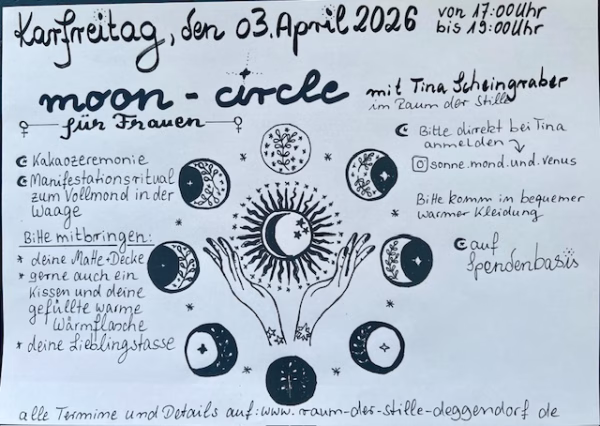 Karfreitag, den 03. April 2026
von 17:00 Uhr
bis 19:00 Uhr
moon - circle
für Frauen
mit Tina Scheingraber
im Raum der Stille
Kakaozeremonie
Manifestationsritual
zum Vollmond in der
Waage
Bitte mitbringen:
* deine Matte + Decke
* gerne auch ein
Kissen und deine
gefüllte warme
Wärmflasche
* deine Lieblingstasse
Bitte direkt bei Tina
anmelden
sonne.mond.und.venus
Bitte komm in bequemer
warmer Kleidung
auf
Spendenbasis
alle Termine und Details auf: www.raum-der-stille-deggendorf de